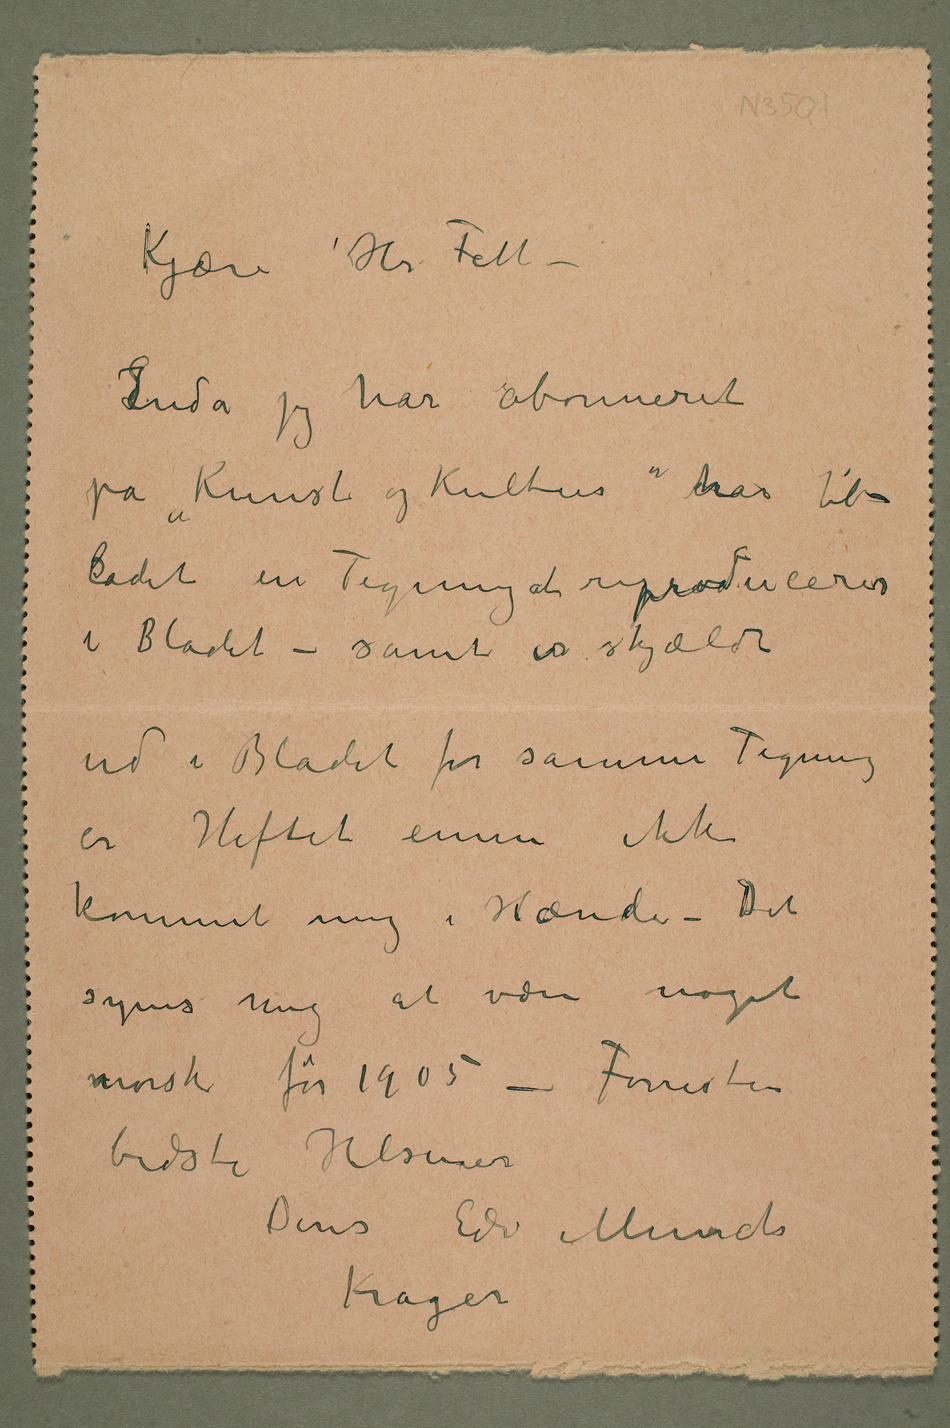 N 3501
Kjære Hr Fett –
Enda jeg har abonneret
på „Kunst og Kultur" har til-
ladet en Tegning at reproduceres
i Bladet – samt er skjældt
ud i Bladet for samme Tegning
er Heftet ennu ikke
kommet mig i Hænde – Det
synes mig at være noget
norsk før 1905 – Forresten
bedste Hilsener
Deres Edv Munch
Kragerø